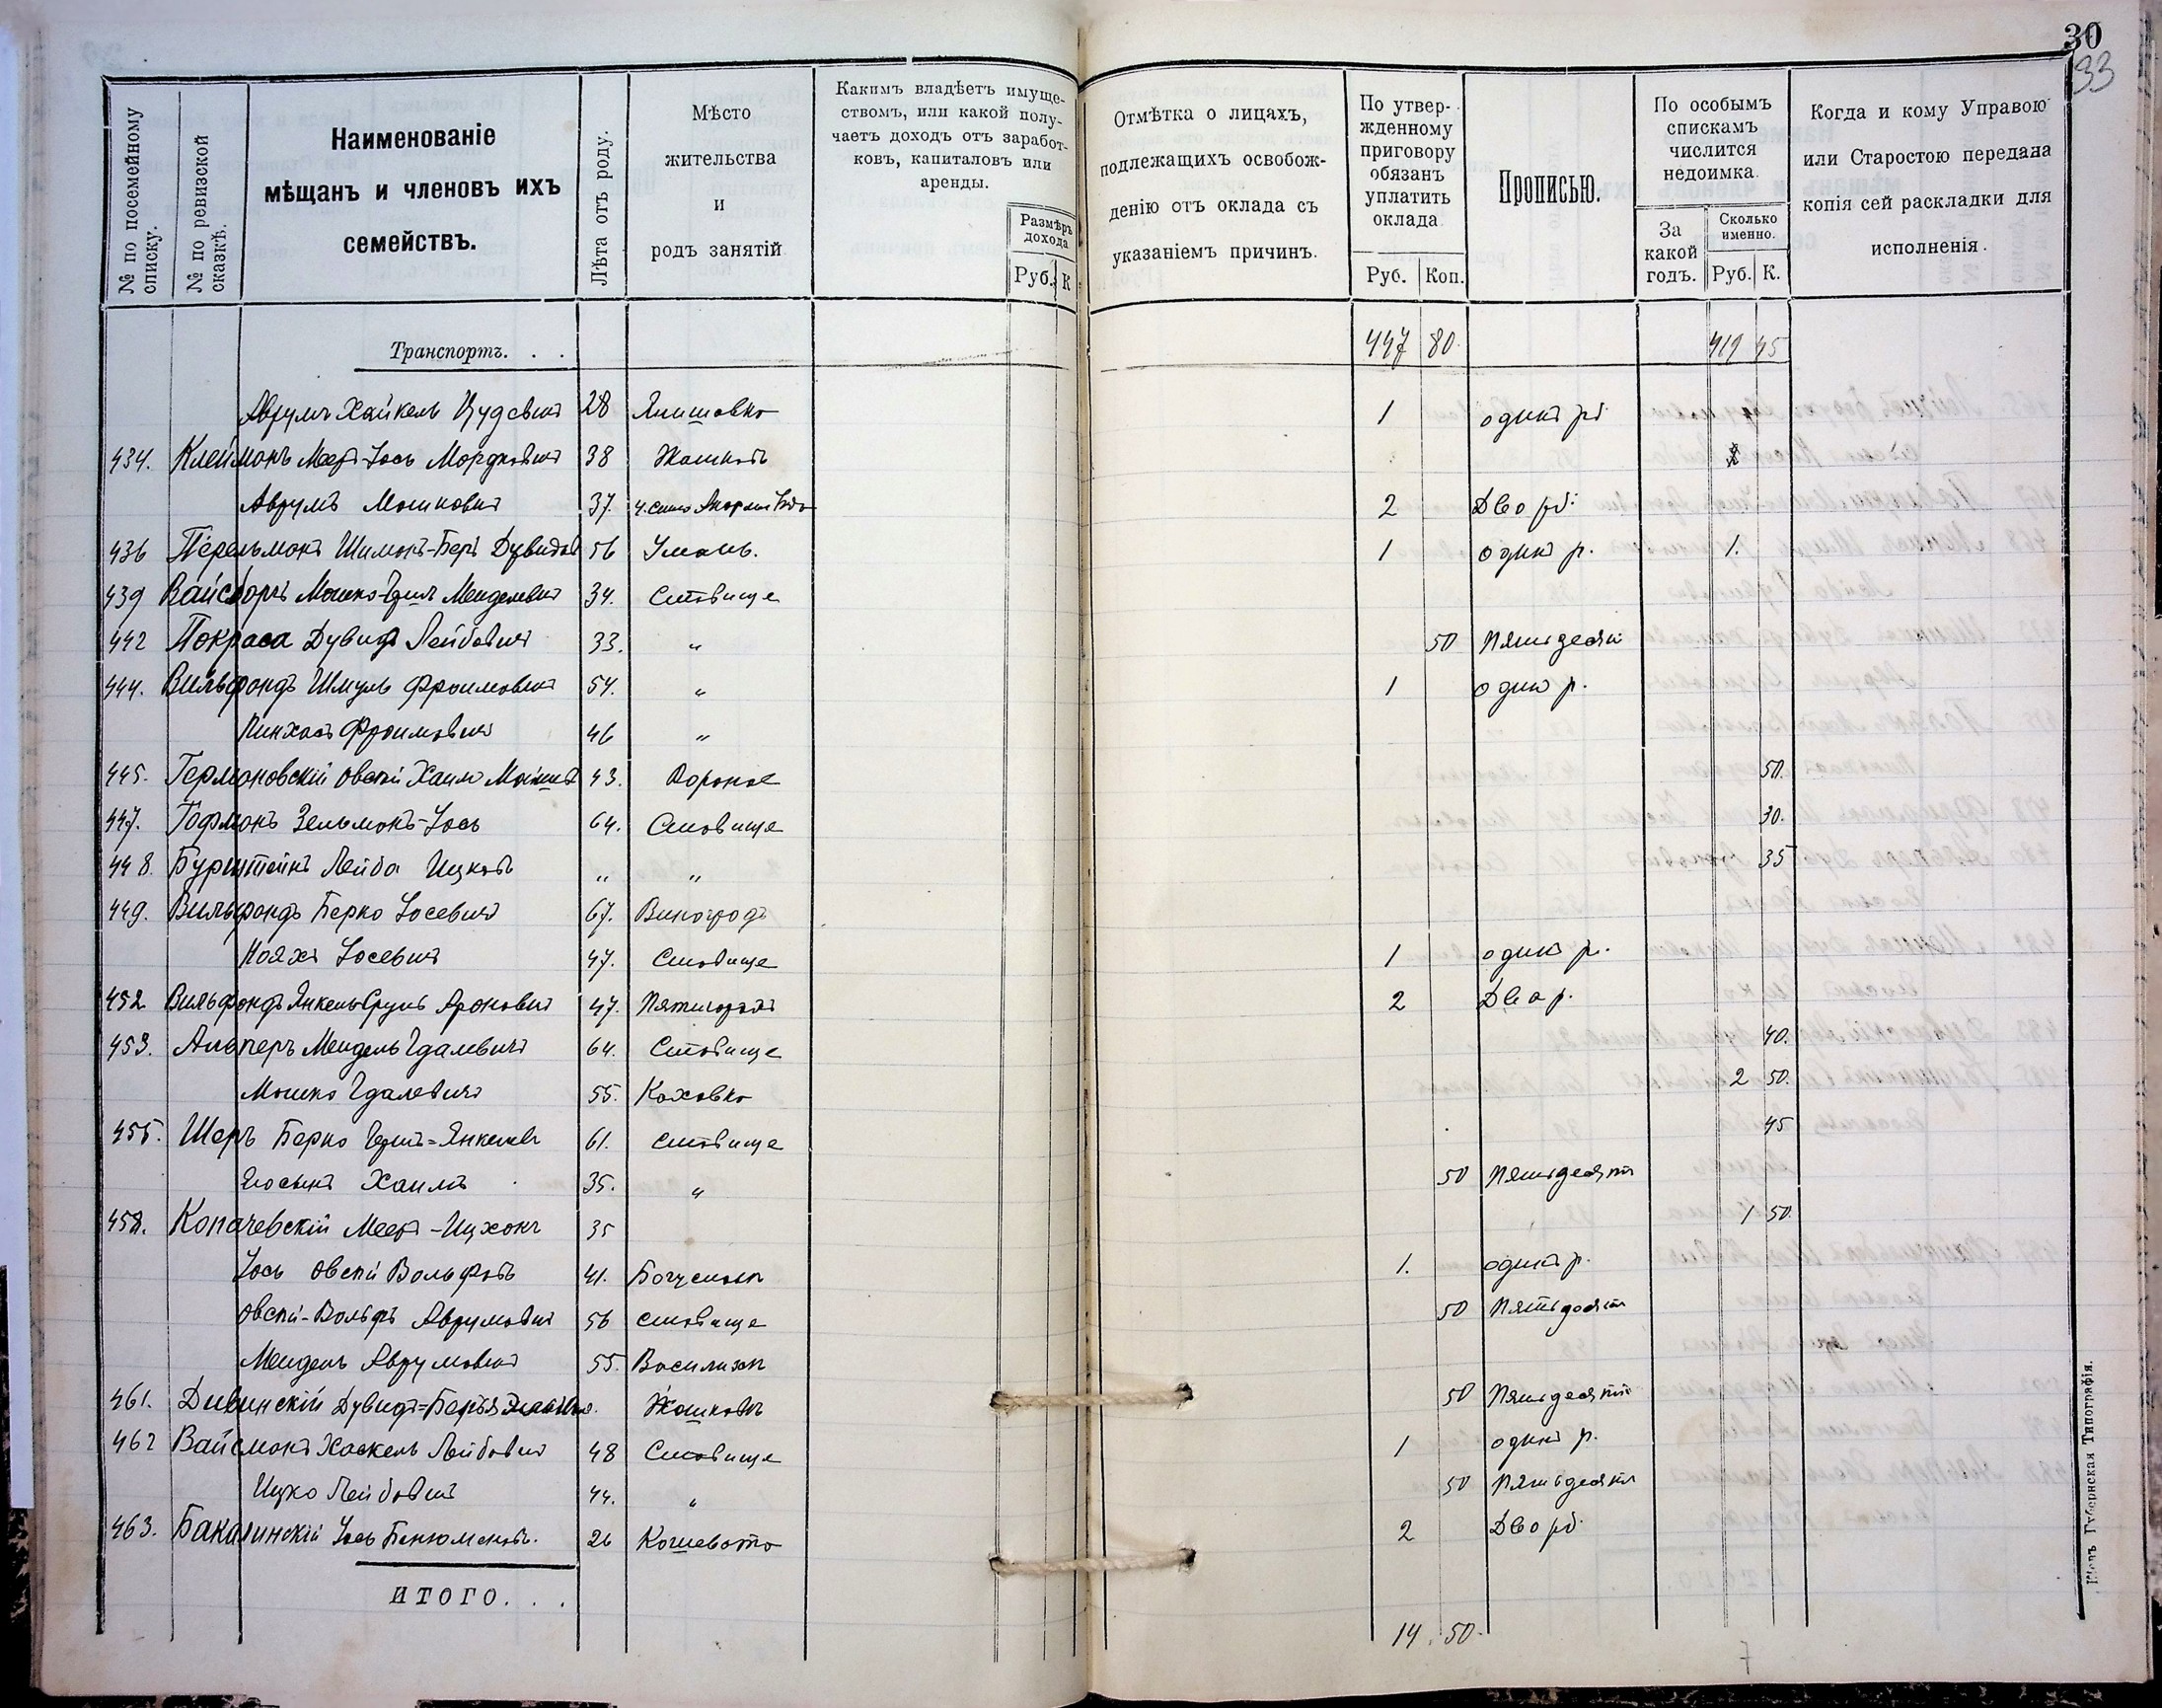 30
33
№ по посемейному списку.
№ по ревизской сказкѣ.
Наименованіе
мѣщанъ и членовъ ихъ
семействъ.
Лѣта отъ роду.
Мѣсто
жительства
и
родъ занятій
Какимъ владѣетъ имуще-
ствомъ, или какой полу-
чаетъ доходъ отъ заработ-
ковъ, капиталовъ или
аренды.
Размѣръ
дохода
Руб. К
Отмѣтка о лицахъ,
подлежащихъ освобож-
денію отъ оклада съ
указаніемъ причинъ.
По утвер-
жденному
приговору
обязанъ
уплатить
оклада
Руб. Коп.
Прописью.
По особымъ
спискамъ
числится
недоимка.
За
какой
годъ.
Сколько
именно.
Руб. К.
Когда и кому Управою
или Старостою передана
копія сей раскладки для
исполненія.
Транспортъ. . . 447 80 419 45
Аврумъ Хайкель 28 1 одинъ рб
434. Клейманъ Меер-Іось Мордковичъ 38 Жашковъ
Аврумъ Мошковичъ 37. 2 Два рб.
436 Перельманъ Шимонъ-Беръ Дувидов 56 Умань. 1 одинъ р. 1.
439 Вайсборгъ Мошко- Менделевичъ 34. Ставище
442 Покраса Дувидъ Лейбовичъ 33. " 50 Пятьдесят
444. Вильфондъ Шмуль Фроимовичъ 54. " 1 один р.
Пинхасъ Фроимовичъ 46 "
445. Овсей Хаимъ 43. 50.
447. Гофманъ Зельманъ-Іось 64. Ставище 30.
448. Бурштейнъ Лейба Ицковъ " " 35
449. Вильфондъ Берко Іосевичъ 67. Виноградъ
Нояхъ Іосевичъ 47. Ставище 1 одинъ р.
452 Вильфондъ Янкель Сруль Ароновичъ 47. Пятигоры 2 Два р.
453. Альперъ Мендель Гдалевичъ 64. Ставище 40.
Мошко Гдалевичъ 55. Каховка 2 50.
455. Шеръ Берко 61. Ставище 45
Хаимъ 35. " 50 Пятьдесят
458. Копачевскій Меер-Ицхокъ 35 1 50.
Іось Овсей Вольфовъ 41. Богуславъ 1. одинъ р.
Овсей-Вольфъ Аврумовичъ 56 Ставище 50 Пятьдесят
Мендель Аврумовичъ 55. Василихи
461. Дивинскій Дувидъ=Беръ Жашковъ 50 Пятьдесят
462 Вайсманъ Хаскель Лейбовичъ 48 Ставище 1 одинъ р.
Ицко Лейбовичъ 44. " 50 Пятьдесят
463. Бакалинскій Іось Бенюминовъ. 26 Кошевато 2 Два рб.
ИТОГО. . . 14. 50.
7
Кіевъ Губернская Типографія.